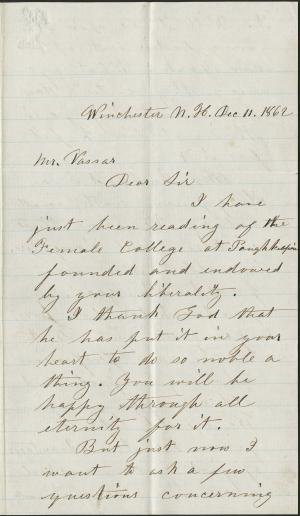 Winchester N. H. Dec 11. 1862
Mr. Vassar
Dear Sir
I have
just been reading of the
Female College at Poughkeepsie
founded and endowed
by your liberality.
I thank God that
he has put it in your
heart to do so noble a
thing. You will be
happy through all
eternity for it.
But just now I
want to ask a few
questions concerning